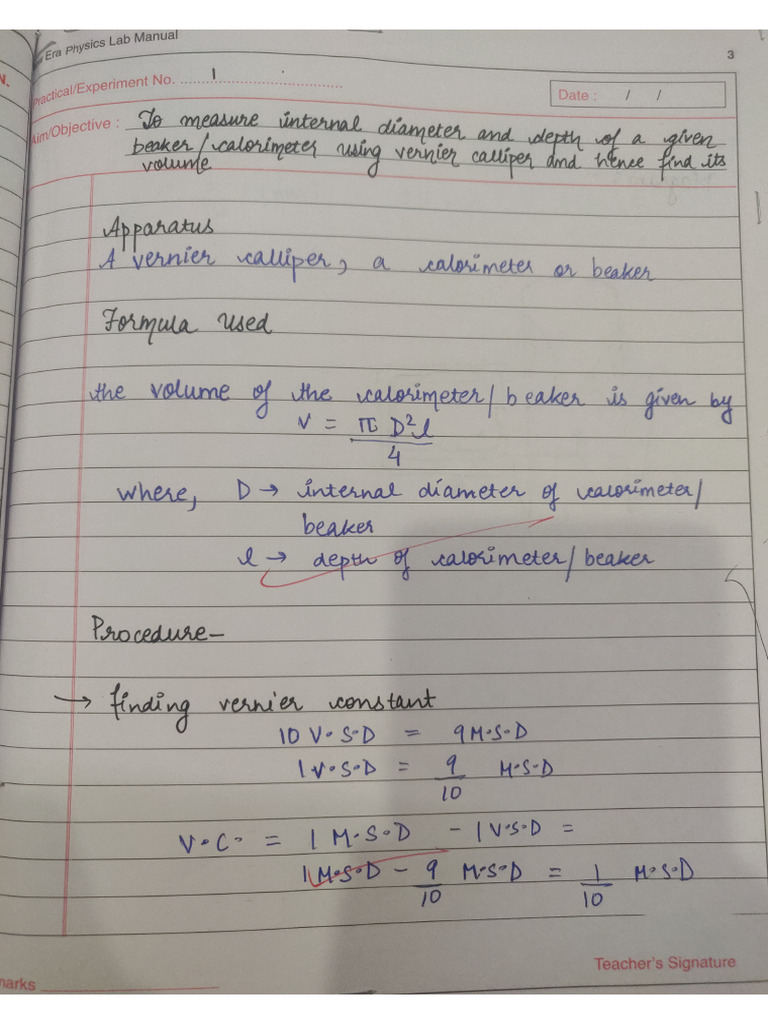 Era Physics Lab Manual
3
N.
Practical/Experiment No. .......1.......
Date : / /
Aim/Objective : To measure internal diameter and depth of a given
beaker/calorimeter using vernier calliper and hence find its
volume
Apparatus
A vernier calliper, a calorimeter or beaker
Formula Used
the volume of the calorimeter/beaker is given by
V = π D²l
4
where, D → internal diameter of calorimeter/
beaker
l → depth of calorimeter/beaker
Procedure-
→ finding vernier constant
10 V.S.D = 9 M.S.D
1 V.S.D = 9 M.S.D
10
V.C. = 1 M.S.D - 1 V.S.D =
1 M.S.D - 9 M.S.D = 1 M.S.D
10 10
Teacher's Signature
marks